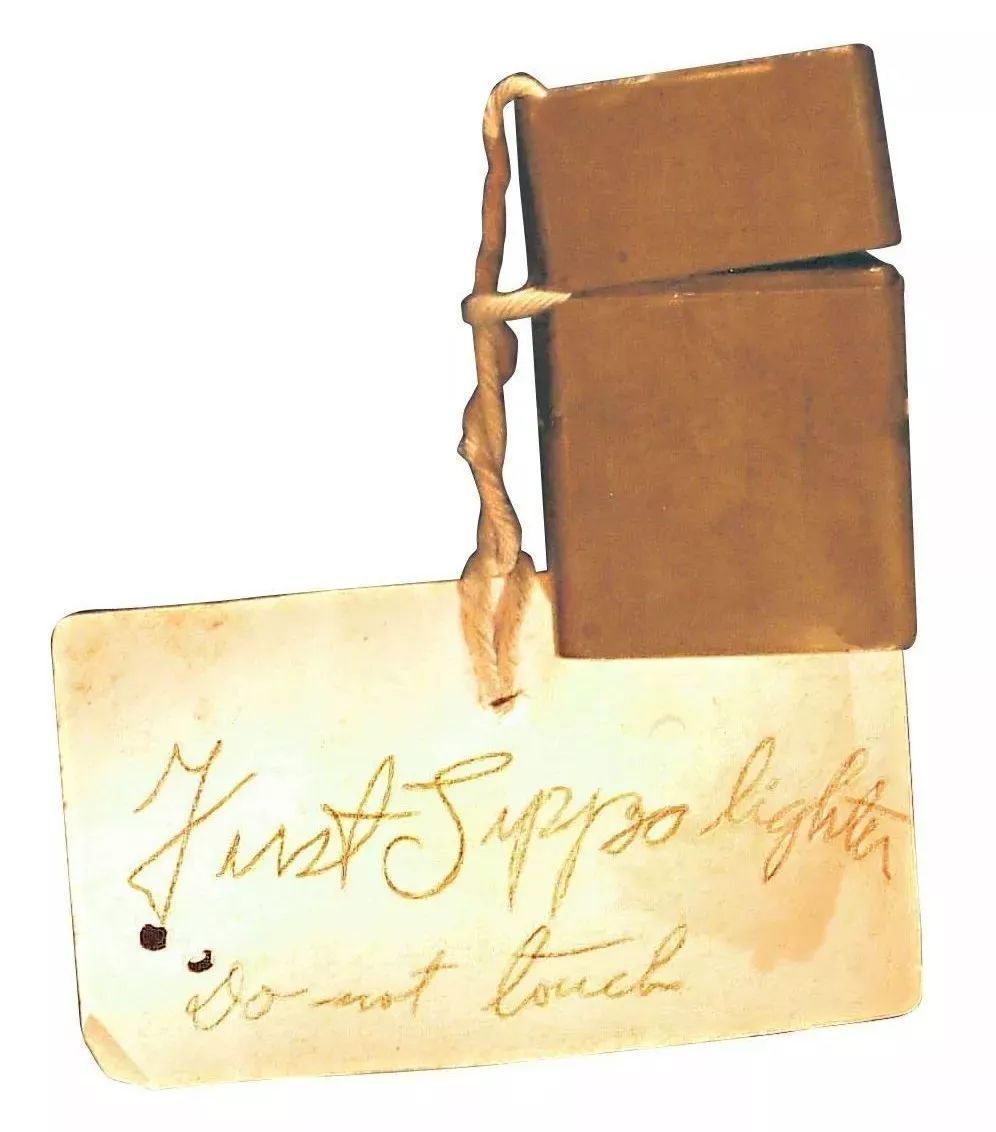 First Zippo lighter
Do not touch